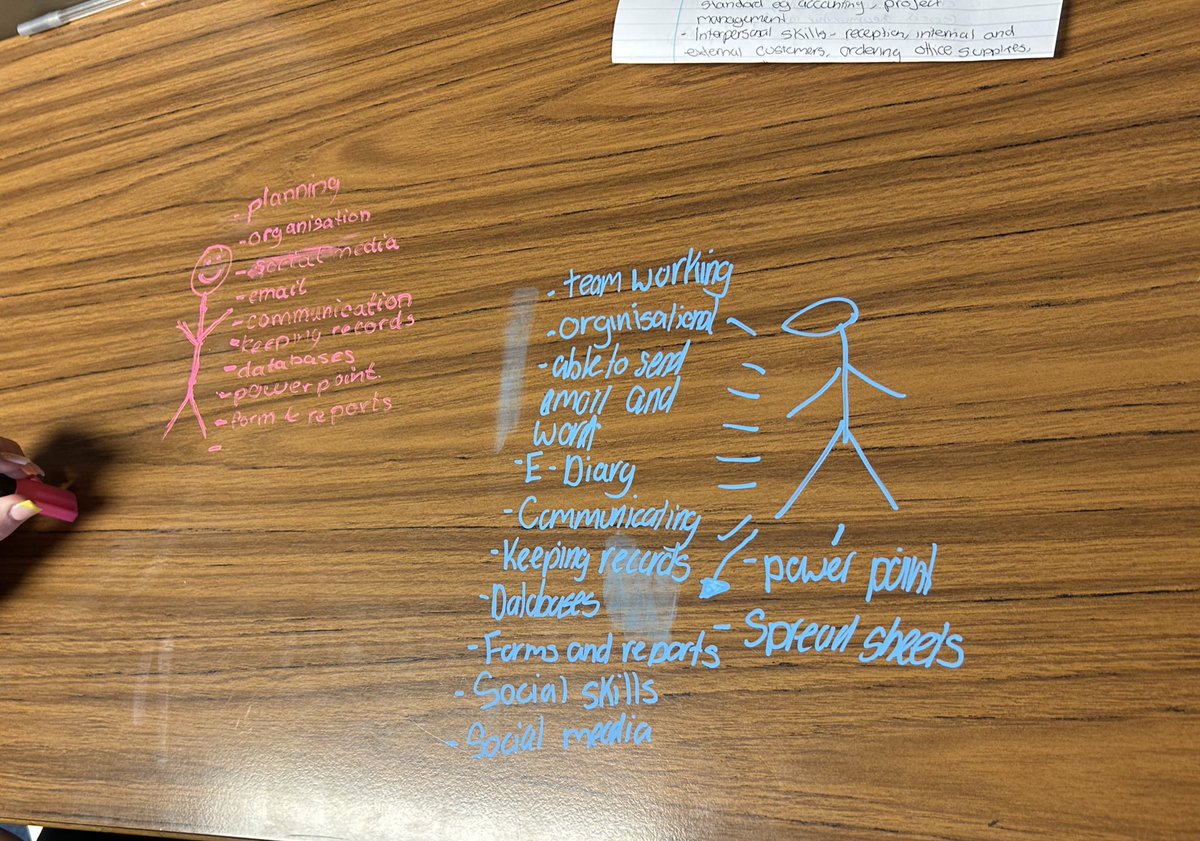 standard eg accounting, project
management
- Interpersonal skills - reception, internal and
external customers, ordering office supplies,
- planning
- organisation
- social media
- email
- communication
- keeping records
- databases
- power point
- form & reports
-
- team working
- orginisational
- able to send
email and
word
- E-Diary
- Communicating
- Keeping records
- Databases
- Forms and reports
- Social skills
- Social media
- power point
- Spread sheets